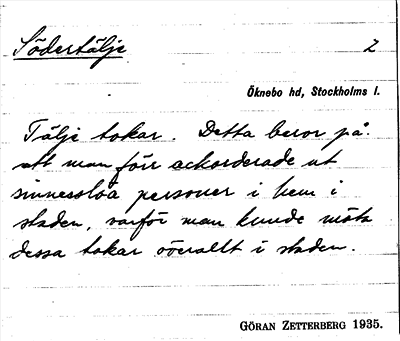 Södertälje 2
Öknebo hd, Stockholms l.
Tälje tokar. Detta beror på.
att man förr ackorderade ut
sinnesslöa personer i hem i
staden, varför man kunde möta
dessa tokar överallt i staden.
GÖRAN ZETTERBERG 1935.